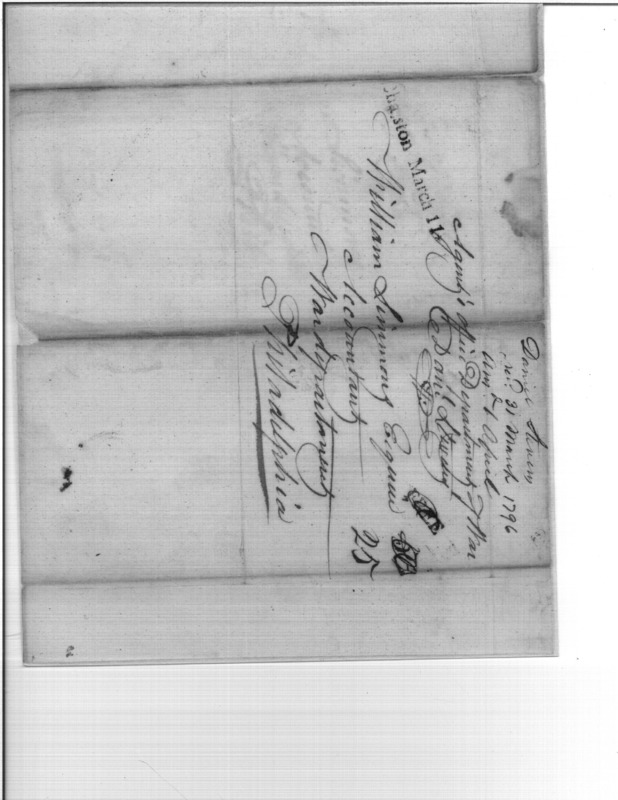 Daniel Stevens
31 March 1796
Ansd 1 April
Agent's Office Department of War
Danl Stevens
Cha.ston March 11
William Simmons Esquire
Accountant
War department
Philadelphia
25